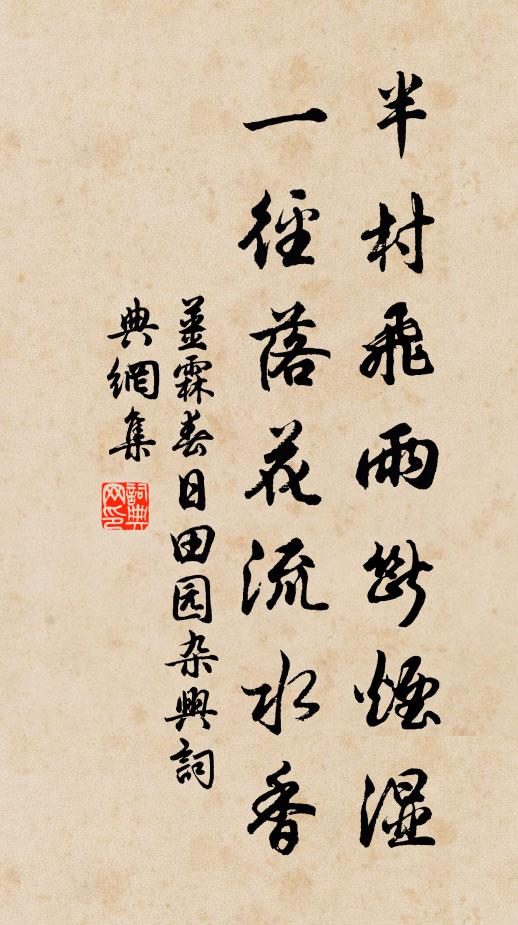 半村飛雨斷煙湿
一径落花流水香
姜霖春日田园杂興詞
典網集
詞典网印